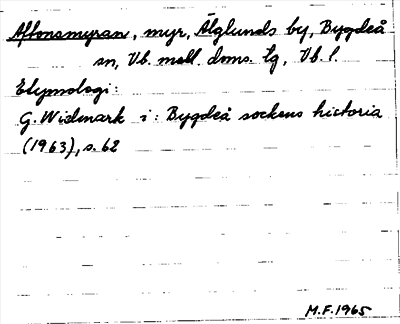 Affonsmyran, myr, Älglunds by, Bygdeå
sn, Vb. mell. doms. tg, Vb. l.
Etymologi:
G. Widmark i: Bygdeå sockens historia
(1963), s. 62
M.F. 1965